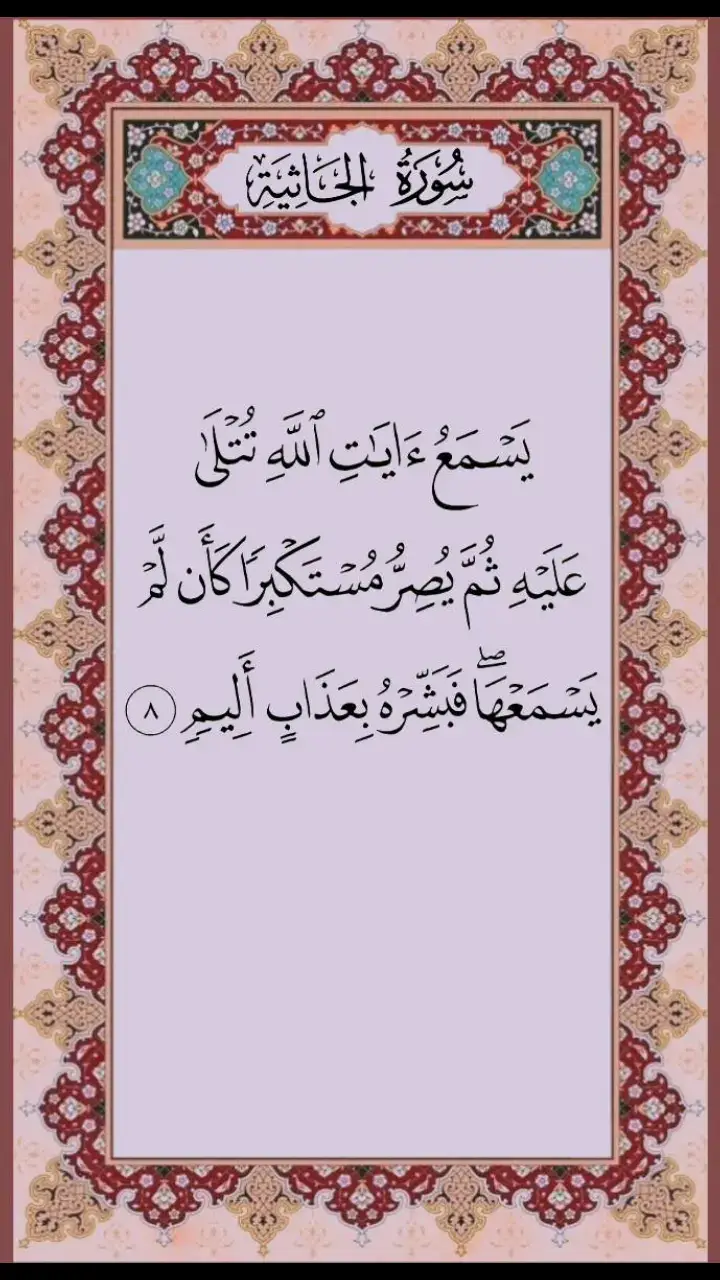 سُورَةُ الجَاثِيَةِ
يَسۡمَعُ ءَايَٰتِ ٱللَّهِ تُتۡلَىٰ
عَلَيۡهِ ثُمَّ يُصِرُّ مُسۡتَكۡبِرٗا كَأَن لَّمۡ
يَسۡمَعۡهَاۖ فَبَشِّرۡهُ بِعَذَابٍ أَلِيمٖ ٨